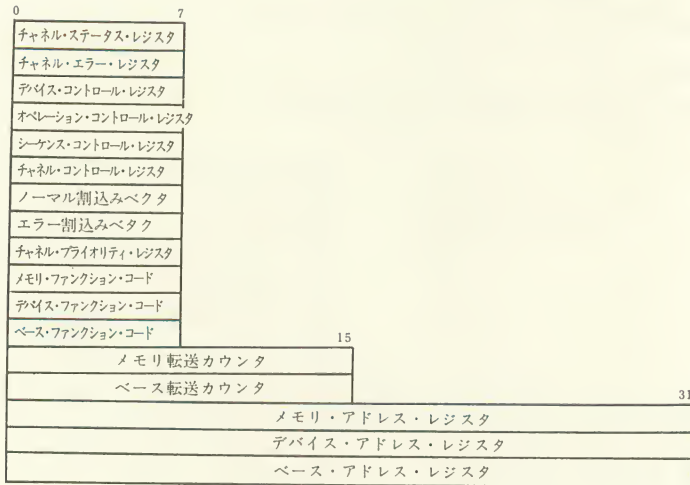 0 7
チャネル・ステータス・レジスタ
チャネル・エラー・レジスタ
デバイス・コントロール・レジスタ
オペレーション・コントロール・レジスタ
シーケンス・コントロール・レジスタ
チャネル・コントロール・レジスタ
ノーマル割込みベクタ
エラー割込みベタク
チャネル・プライオリティ・レジスタ
メモリ・ファンクション・コード
デバイス・ファンクション・コード
ベース・ファンクション・コード
15
メモリ転送カウンタ
ベース転送カウンタ
31
メモリ・アドレス・レジスタ
デバイス・アドレス・レジスタ
ベース・アドレス・レジスタ